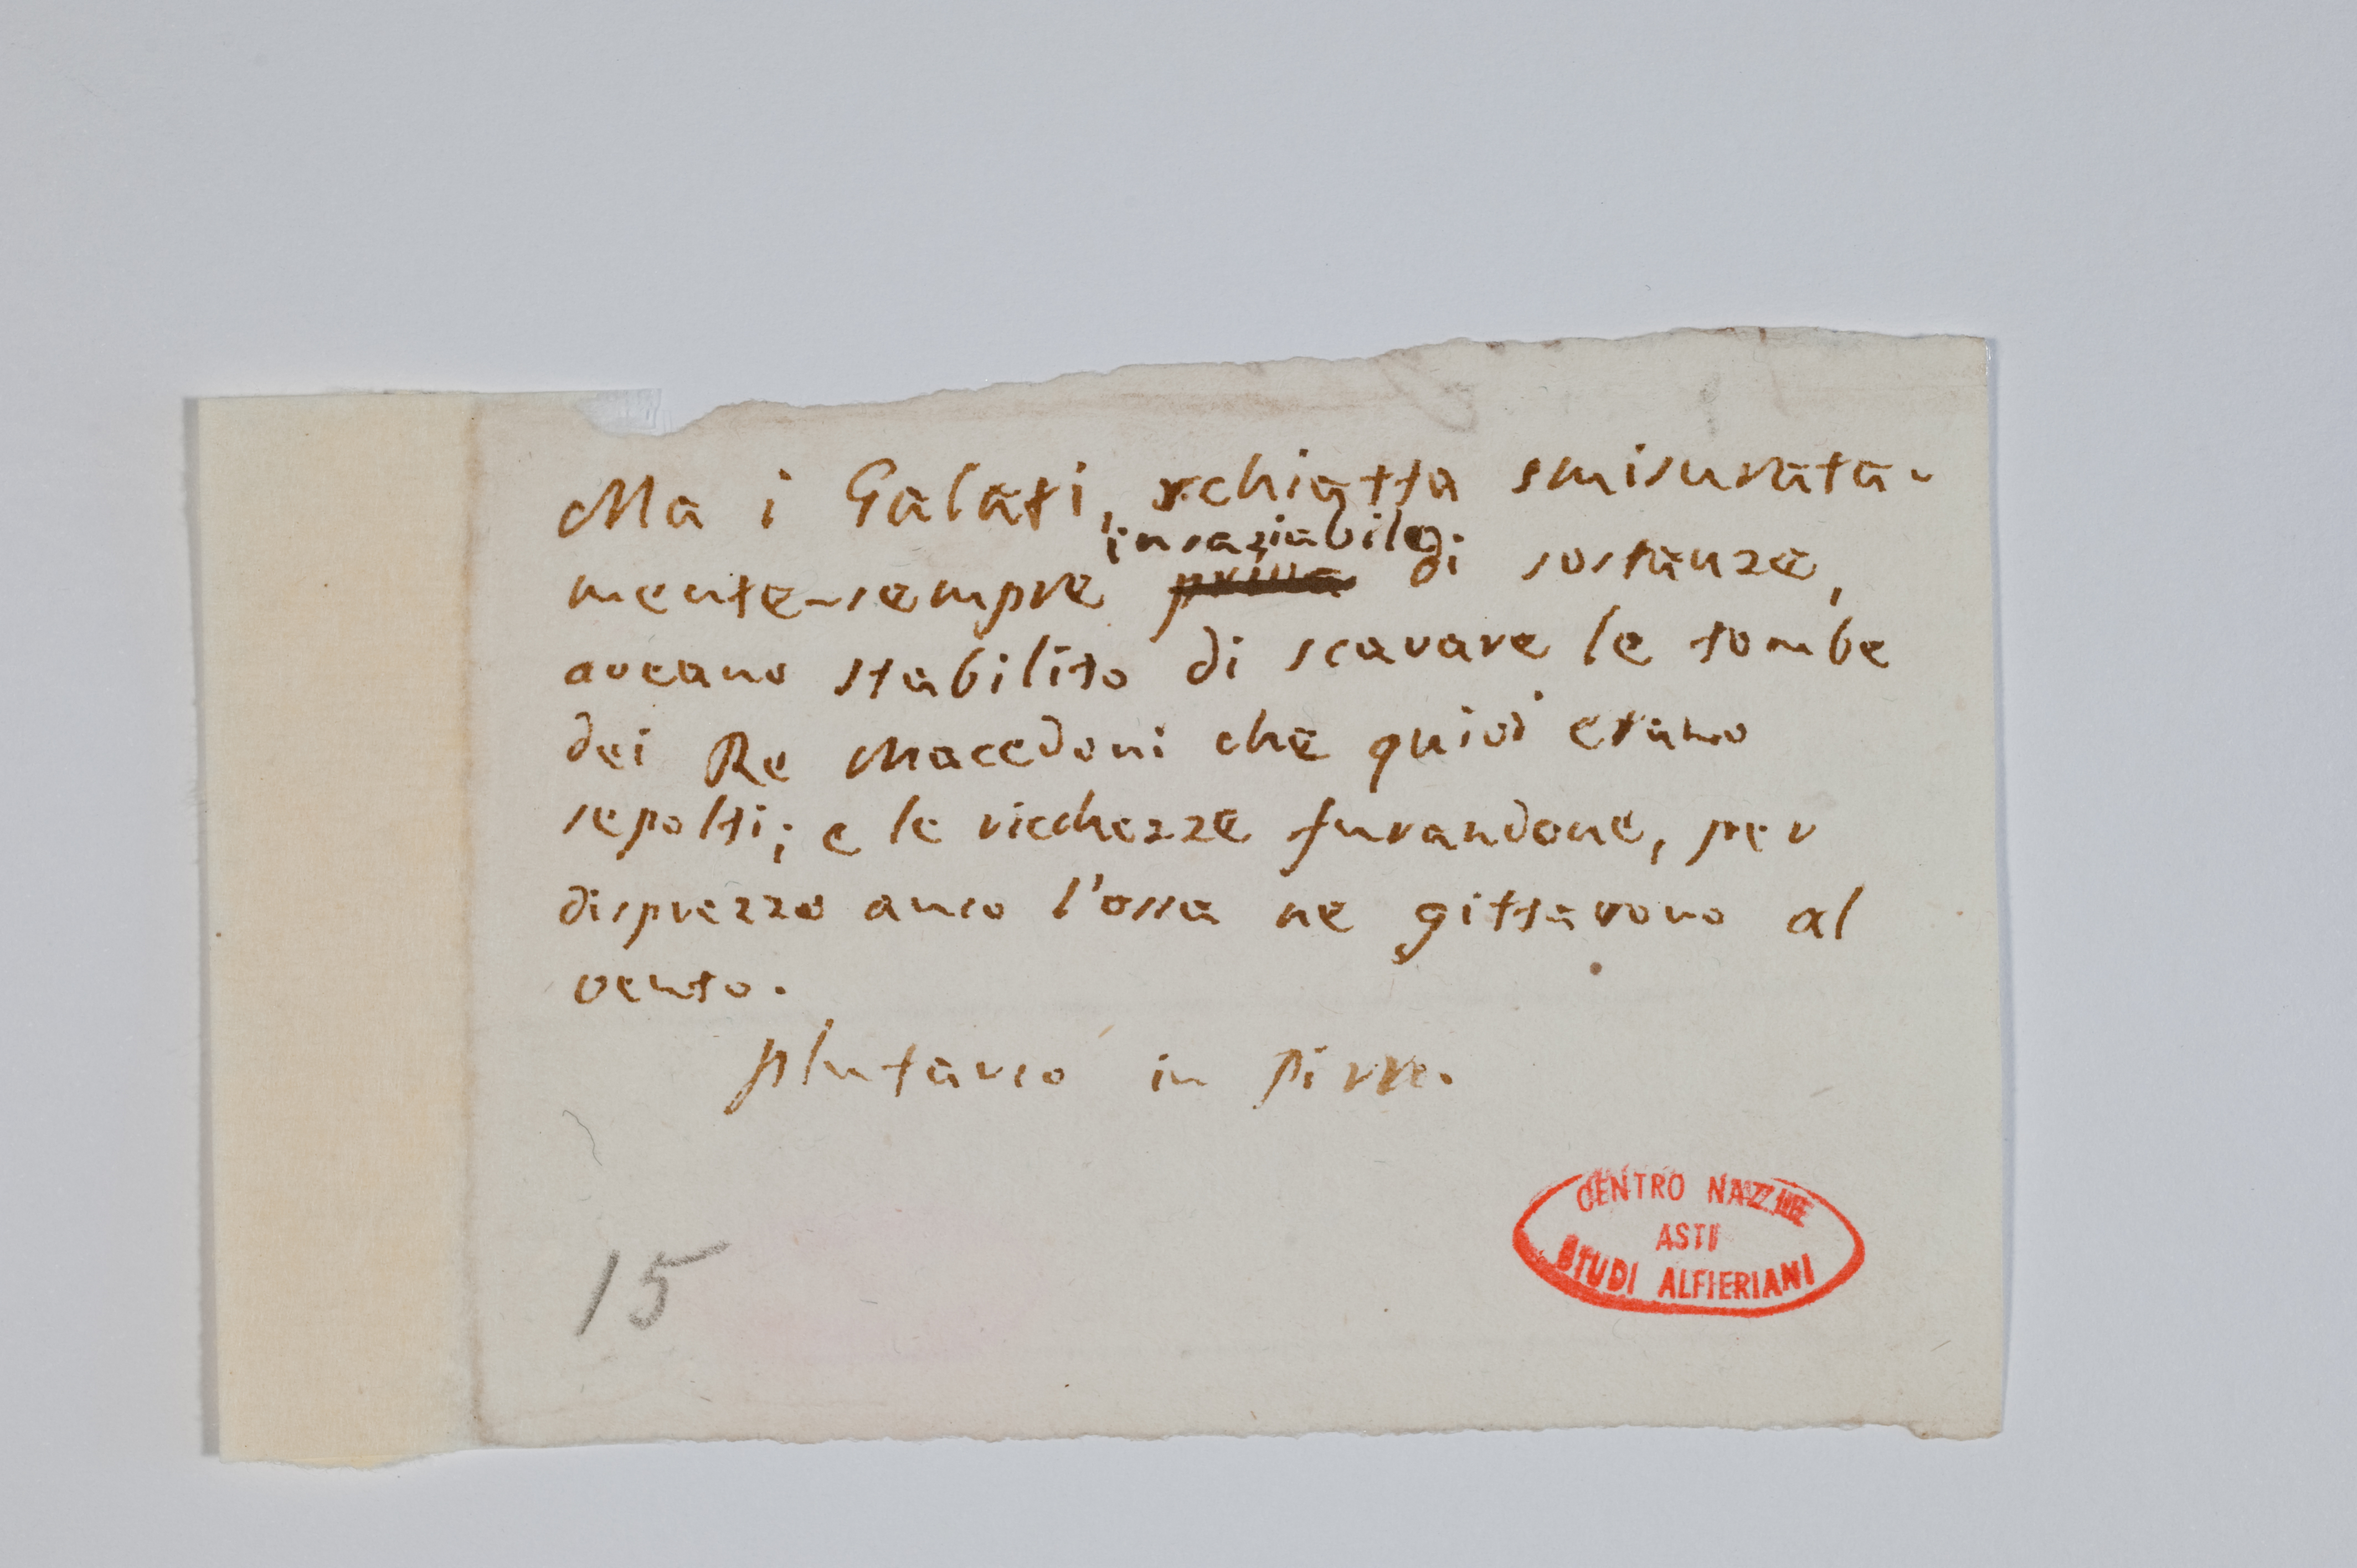 Ma i Galati, schiatta smisurata-
insaziabile
mente-sempre priva di sostanze,
aveano stabilito di scavare le tombe
dei Re Macedoni che quivi erano
sepolti; e le ricchezze furandone, per
disprezzo anco l'ossa ne gittarono al
vento.
Plutarco in Pirro.
15
CENTRO NAZ.NE
ASTI
STUDI ALFIERIANI